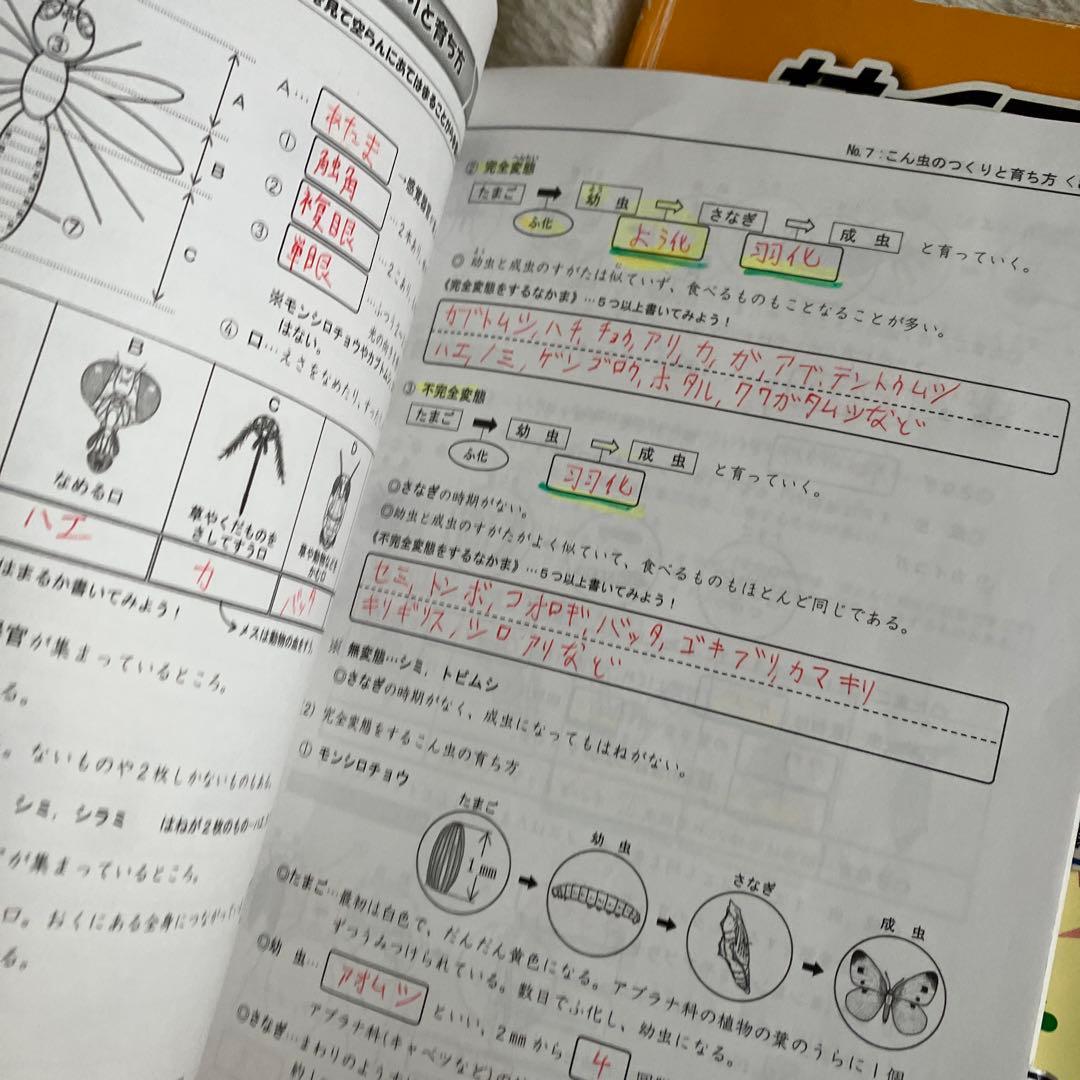 りと育ち方
を見て空らんにあてはまることばを
A… あたま
① 触角
② 複眼
③ 単眼
③
A
B
C
⑦
※モンシロチョウやカブトムシ
はない。
④ 口…えさをなめたり、
B
なめる口
ハエ
C
草やくだものを
さしてすう口
カ
D
バッタ
メスは動物の血をすう
はまるか書いてみよう！
官が集まっているところ。
る。
。ないものや２枚しかないものもある。
シミ，シラミ はねが２枚のもの…ハエ
が集まっているところ。
口。おくにある全身につながった
る。
№7：こん虫のつくりと育ち方
② 完全変態
たまご ➡ 幼虫 ⇨ さなぎ ⇨ 成虫 と育っていく。
ふ化 よう化 羽化
◎幼虫と成虫のすがたは似ていず、食べるものもことなることが多い。
《完全変態をするなかま》…５つ以上書いてみよう！
カブトムシ，ハチ，チョウ，アリ，カ，ガ，アブ，テントウムシ
ハエ，ノミ，ゲンゴロウ，ホタル，クワガタムシなど
③ 不完全変態
たまご ➡ 幼虫 ⇨ 成虫 と育っていく。
ふ化 羽化
◎さなぎの時期がない。
◎幼虫と成虫のすがたがよく似ていて、食べるものもほとんど同じである。
《不完全変態をするなかま》…５つ以上書いてみよう！
セミ，トンボ，コオロギ，バッタ，ゴキブリ，カマキリ
キリギリス，シロアリなど
※ 無変態…シミ，トビムシ
◎さなぎの時期がなく、成虫になってもはねがない。
2) 完全変態をするこん虫の育ち方
① モンシロチョウ
たまご 幼虫 さなぎ 成虫
1㎜
◎たまご…最初は白色で、だんだん黄色になる。アブラナ科の植物の葉のうらに１個
ずつうみつけられている。数日でふ化し、幼虫になる。
◎幼虫… アオムシ といい、２㎜から 4
アブラナ科(キャベツなど)の
◎さなぎ…まわりのよう